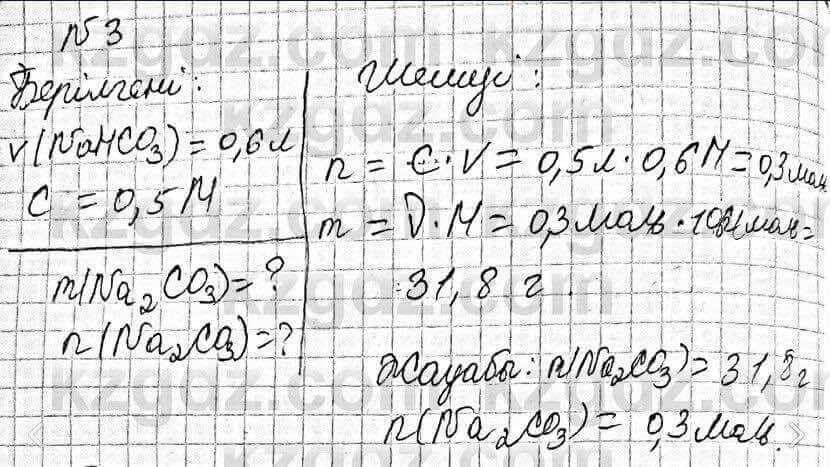 №3
Берілгені:
v(NaHCO₃) = 0,6 л
C = 0,5 М
m(Na₂CO₃) = ?
n(Na₂CO₃) = ?
Шешуі:
n = C·V = 0,5 л · 0,6 М = 0,3 моль
m = D·M = 0,3 моль · 106 г/моль =
31,8 г
Жауабы: m(Na₂CO₃) = 31,8 г
n(Na₂CO₃) = 0,3 моль.
kzgaz.com